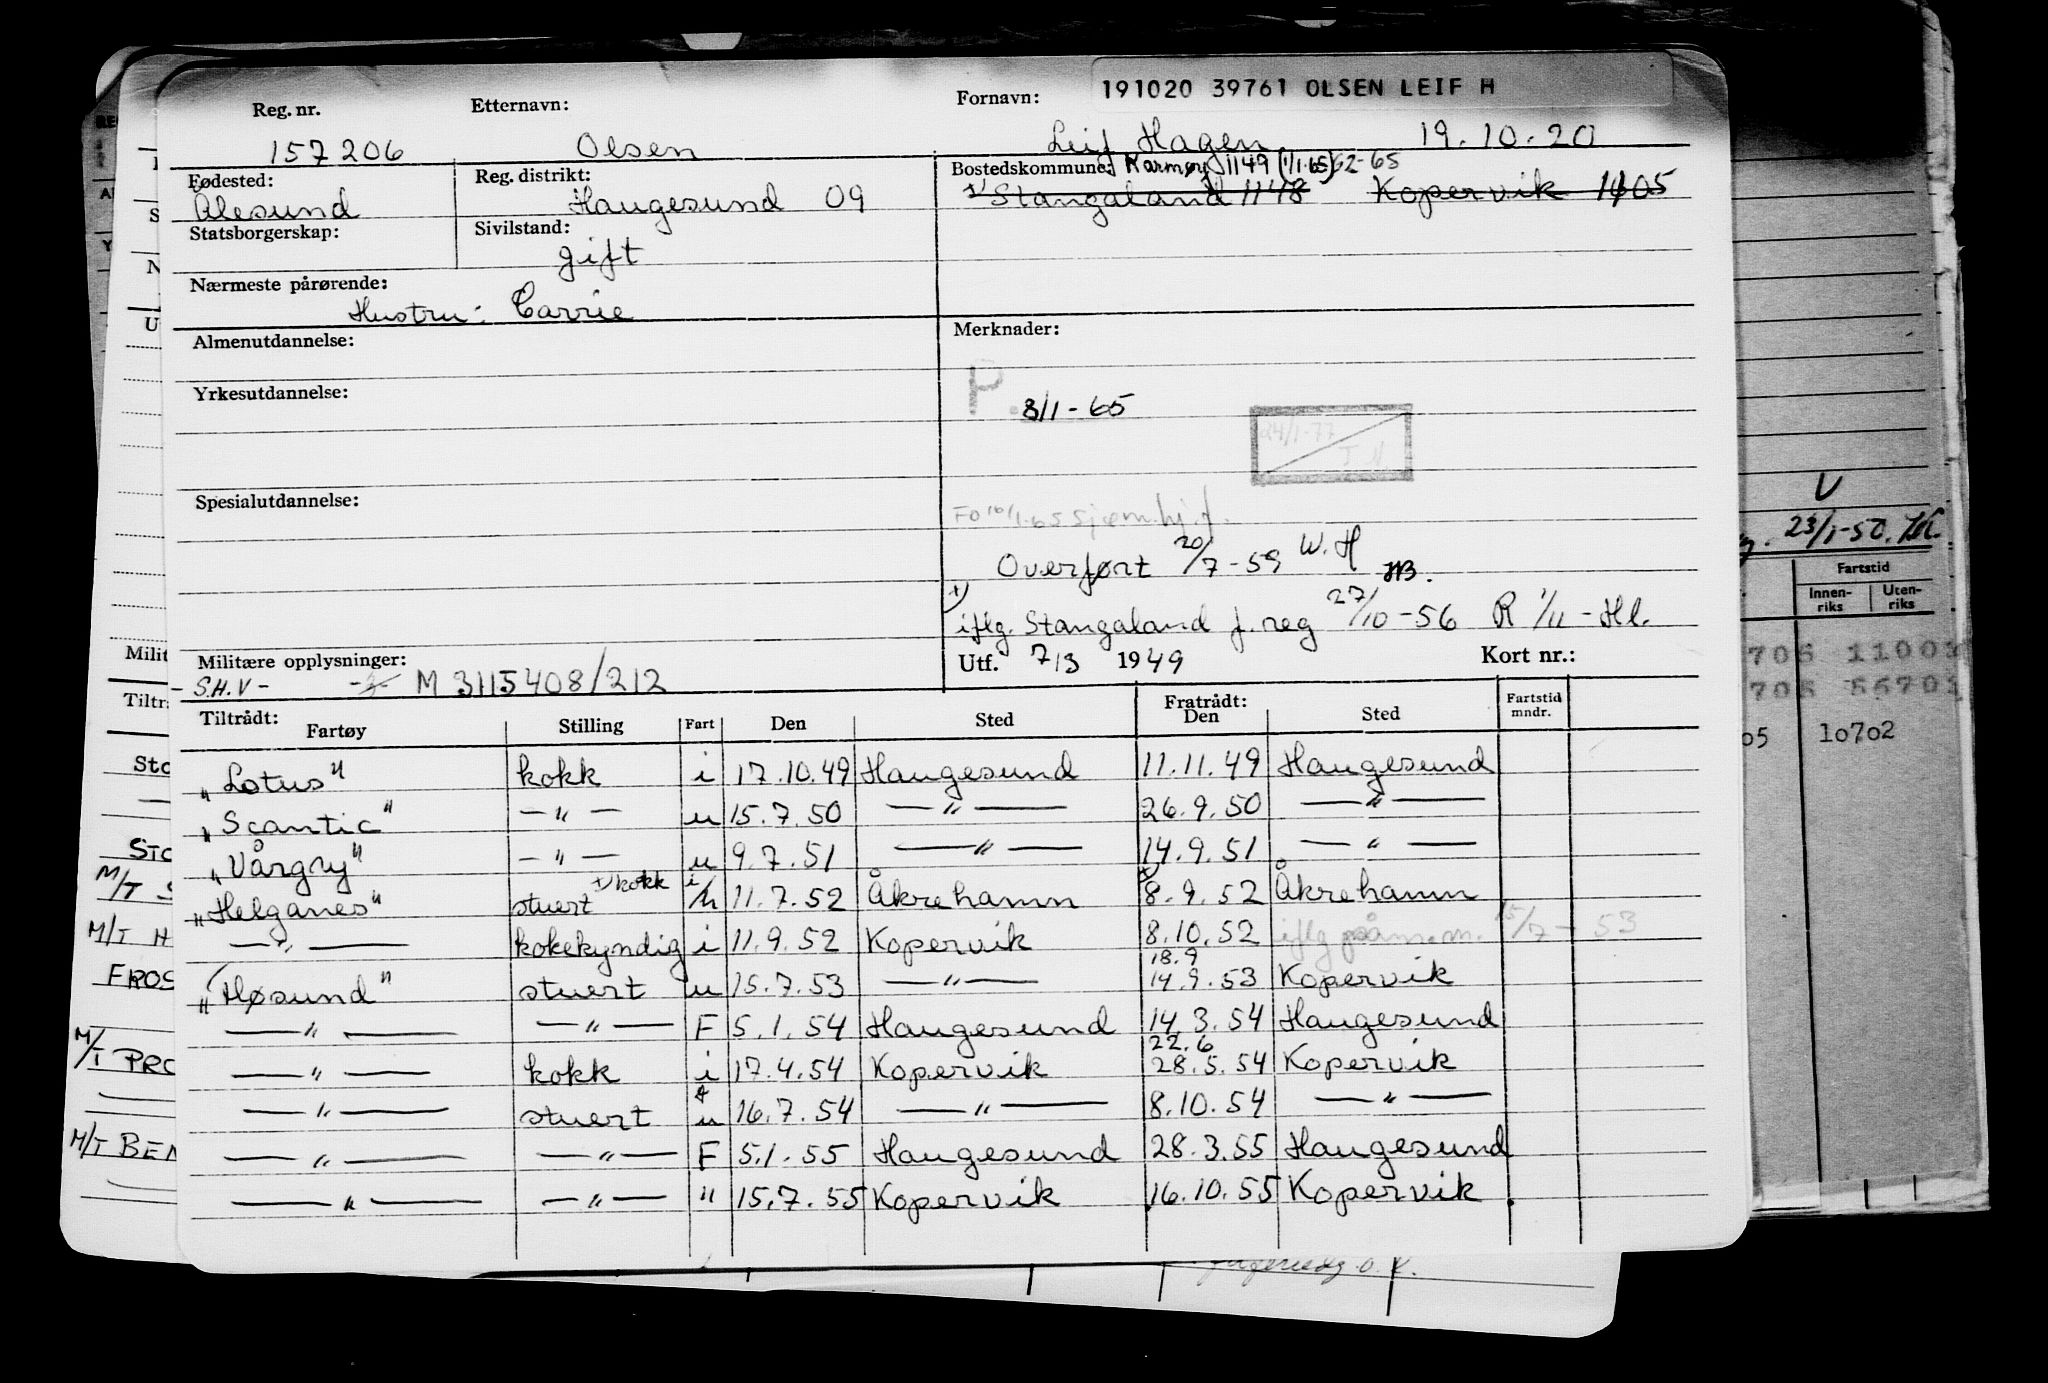 191020 39761 OLSEN LEIF H
Reg. nr. Etternavn: Fornavn:
157206 Olsen Leif Hagen 19.10.20
Fødested: Reg. distrikt: Bostedskommune: Karmøy 1149 (1/1-65) 62-65
Ålesund Haugesund 09 Stangaland 1148 Kopervik 1105
Statsborgerskap: Sivilstand:
gift
Nærmeste pårørende:
Hustru: Carrie
Almenutdannelse: Merknader:
Yrkesutdannelse:
P. 8/1-65
24/1-77
Spesialutdannelse:
Overført 20/7-59 W.H
iflg. Stangaland f.reg 27/10-56 R 1/11-Hl.
Militære opplysninger: Utf. 7/3 1949 Kort nr.:
-S.H.V- M 3115408/212
Tiltrådt: Fratrådt: Fartstid
Fartøy Stilling Fart Den Sted Den Sted mndr.
"Lotus" kokk i 17.10.49 Haugesund 11.11.49 Haugesund
"Scantic" —"— u 15.7.50 —"— 26.9.50 —"—
"Vårgry" —"— u 9.7.51 —"— 14.9.51 —"—
"Helganes" stuert +kokk i/h 11.7.52 Åkrehamn 8.9.52 Åkrehamn
—"— kokekyndig i 11.9.52 Kopervik 8.10.52 iflg 15/7-53
18.9
"Høsund" stuert u 15.7.53 —"— 14.9.53 Kopervik
—"— —"— F 5.1.54 Haugesund 14.3.54 Haugesund
22.6
—"— kokk i 17.4.54 Kopervik 28.5.54 Kopervik
—"— stuert u 16.7.54 —"— 8.10.54 —"—
—"— —"— F 5.1.55 Haugesund 28.3.55 Haugesund
—"— —"— " 15.7.55 Kopervik 16.10.55 Kopervik
Milit
Tiltr
Sto
STO
M/T S
M/T H
FROS
M/T PRO
M/T BEN
V
23/1-50.
Fartstid
Innen-riks Uten-riks
705 11001
705 56701
05 10702